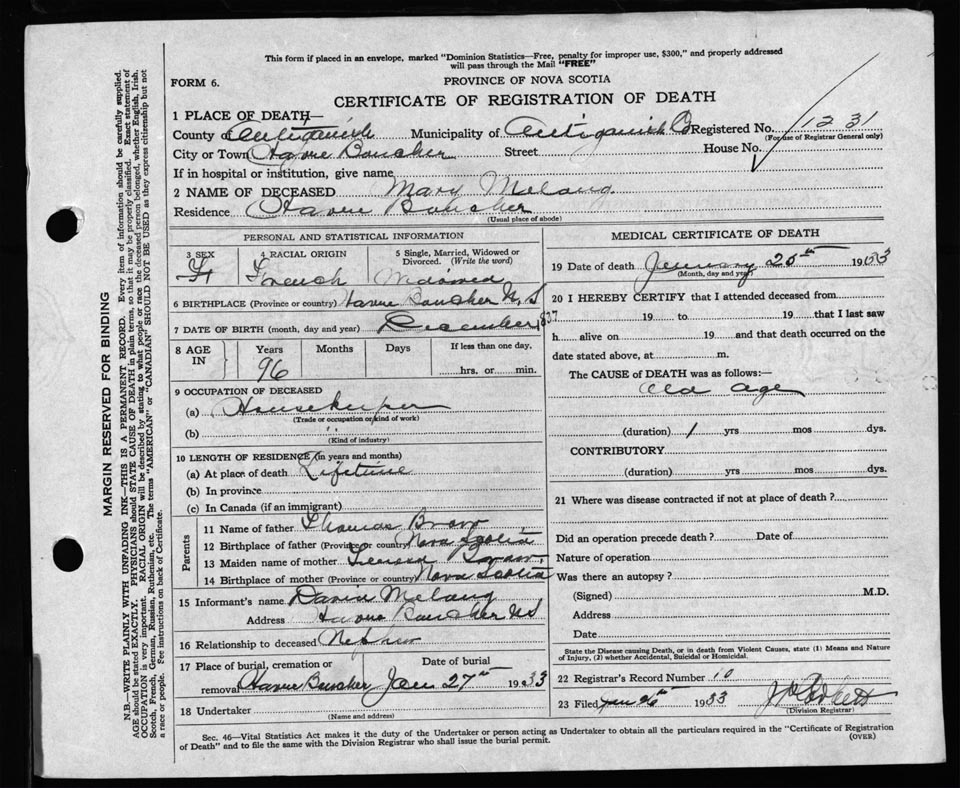 This form if placed in an envelope, marked "Dominion Statistics—Free, penalty for improper use, $300," and properly addressed
will pass through the Mail "FREE"
FORM 6.
PROVINCE OF NOVA SCOTIA
CERTIFICATE OF REGISTRATION OF DEATH
1 PLACE OF DEATH—
County of Antigonish Municipality of Antigonish Registered No. 1231
(For use of Registrar General only)
City or Town Havre Boucher Street House No.
If in hospital or institution, give name
2 NAME OF DECEASED Mary Melang
Residence Havre Boucher
(Usual place of abode)
PERSONAL AND STATISTICAL INFORMATION
3 SEX 4 RACIAL ORIGIN 5 Single, Married, Widowed or
Divorced. (Write the word)
F French Widowed
6 BIRTHPLACE (Province or country) Havre Boucher N.S
7 DATE OF BIRTH (month, day and year) December 1837
8 AGE IN Years Months Days If less than one day.
96 hrs. or min.
9 OCCUPATION OF DECEASED
(a) Housekeeper
(Trade or occupation or kind of work)
(b) " "
(Kind of industry)
10 LENGTH OF RESIDENCE (in years and months)
(a) At place of death Lifetime
(b) In province
(c) In Canada (if an immigrant)
Parents
11 Name of father Thomas
12 Birthplace of father (Province or country) Nova Scotia
13 Maiden name of mother
14 Birthplace of mother (Province or country) Nova Scotia
15 Informant's name David Melang
Address Havre Boucher NS
16 Relationship to deceased Nephew
17 Place of burial, cremation or Date of burial
removal Havre Boucher Jan 27th 1933
18 Undertaker
(Name and address)
MEDICAL CERTIFICATE OF DEATH
19 Date of death January 25th 1933
(Month, day and year)
20 I HEREBY CERTIFY that I attended deceased from
19 to 19 that I last saw
h alive on 19 and that death occurred on the
date stated above, at m.
The CAUSE of DEATH was as follows:—
Old age
(duration) yrs mos dys.
CONTRIBUTORY
(duration) yrs. mos. dys.
21 Where was disease contracted if not at place of death?
Did an operation precede death? Date of
Nature of operation
Was there an autopsy?
(Signed) M.D.
Address
Date
State the Disease causing Death, or in death from Violent Causes, state (1) Means and Nature
of Injury, (2) whether Accidental, Suicidal or Homicidal.
22 Registrar's Record Number 10
23 Filed Jan 26 1933
(Division Registrar)
Sec. 46—Vital Statistics Act makes it the duty of the Undertaker or person acting as Undertaker to obtain all the particulars required in the "Certificate of Registration
of Death" and to file the same with the Division Registrar who shall issue the burial permit.
(OVER)
MARGIN RESERVED FOR BINDING
N.B.—WRITE PLAINLY WITH UNFADING INK—THIS IS A PERMANENT RECORD. Every item of information should be carefully supplied.
AGE should be stated EXACTLY. PHYSICIANS should STATE CAUSE OF DEATH in plain terms, so that it may be properly classified. Exact statement of
OCCUPATION is very important. RACIAL ORIGIN will be described by stating to what people or race the deceased person belonged, whether English, Irish,
Scotch, French, German, Russian, Ruthenian, etc. The terms "AMERICAN" or "CANADIAN" SHOULD NOT BE USED as they express citizenship but not
a race or people. Fee instructions on back of Certificate.